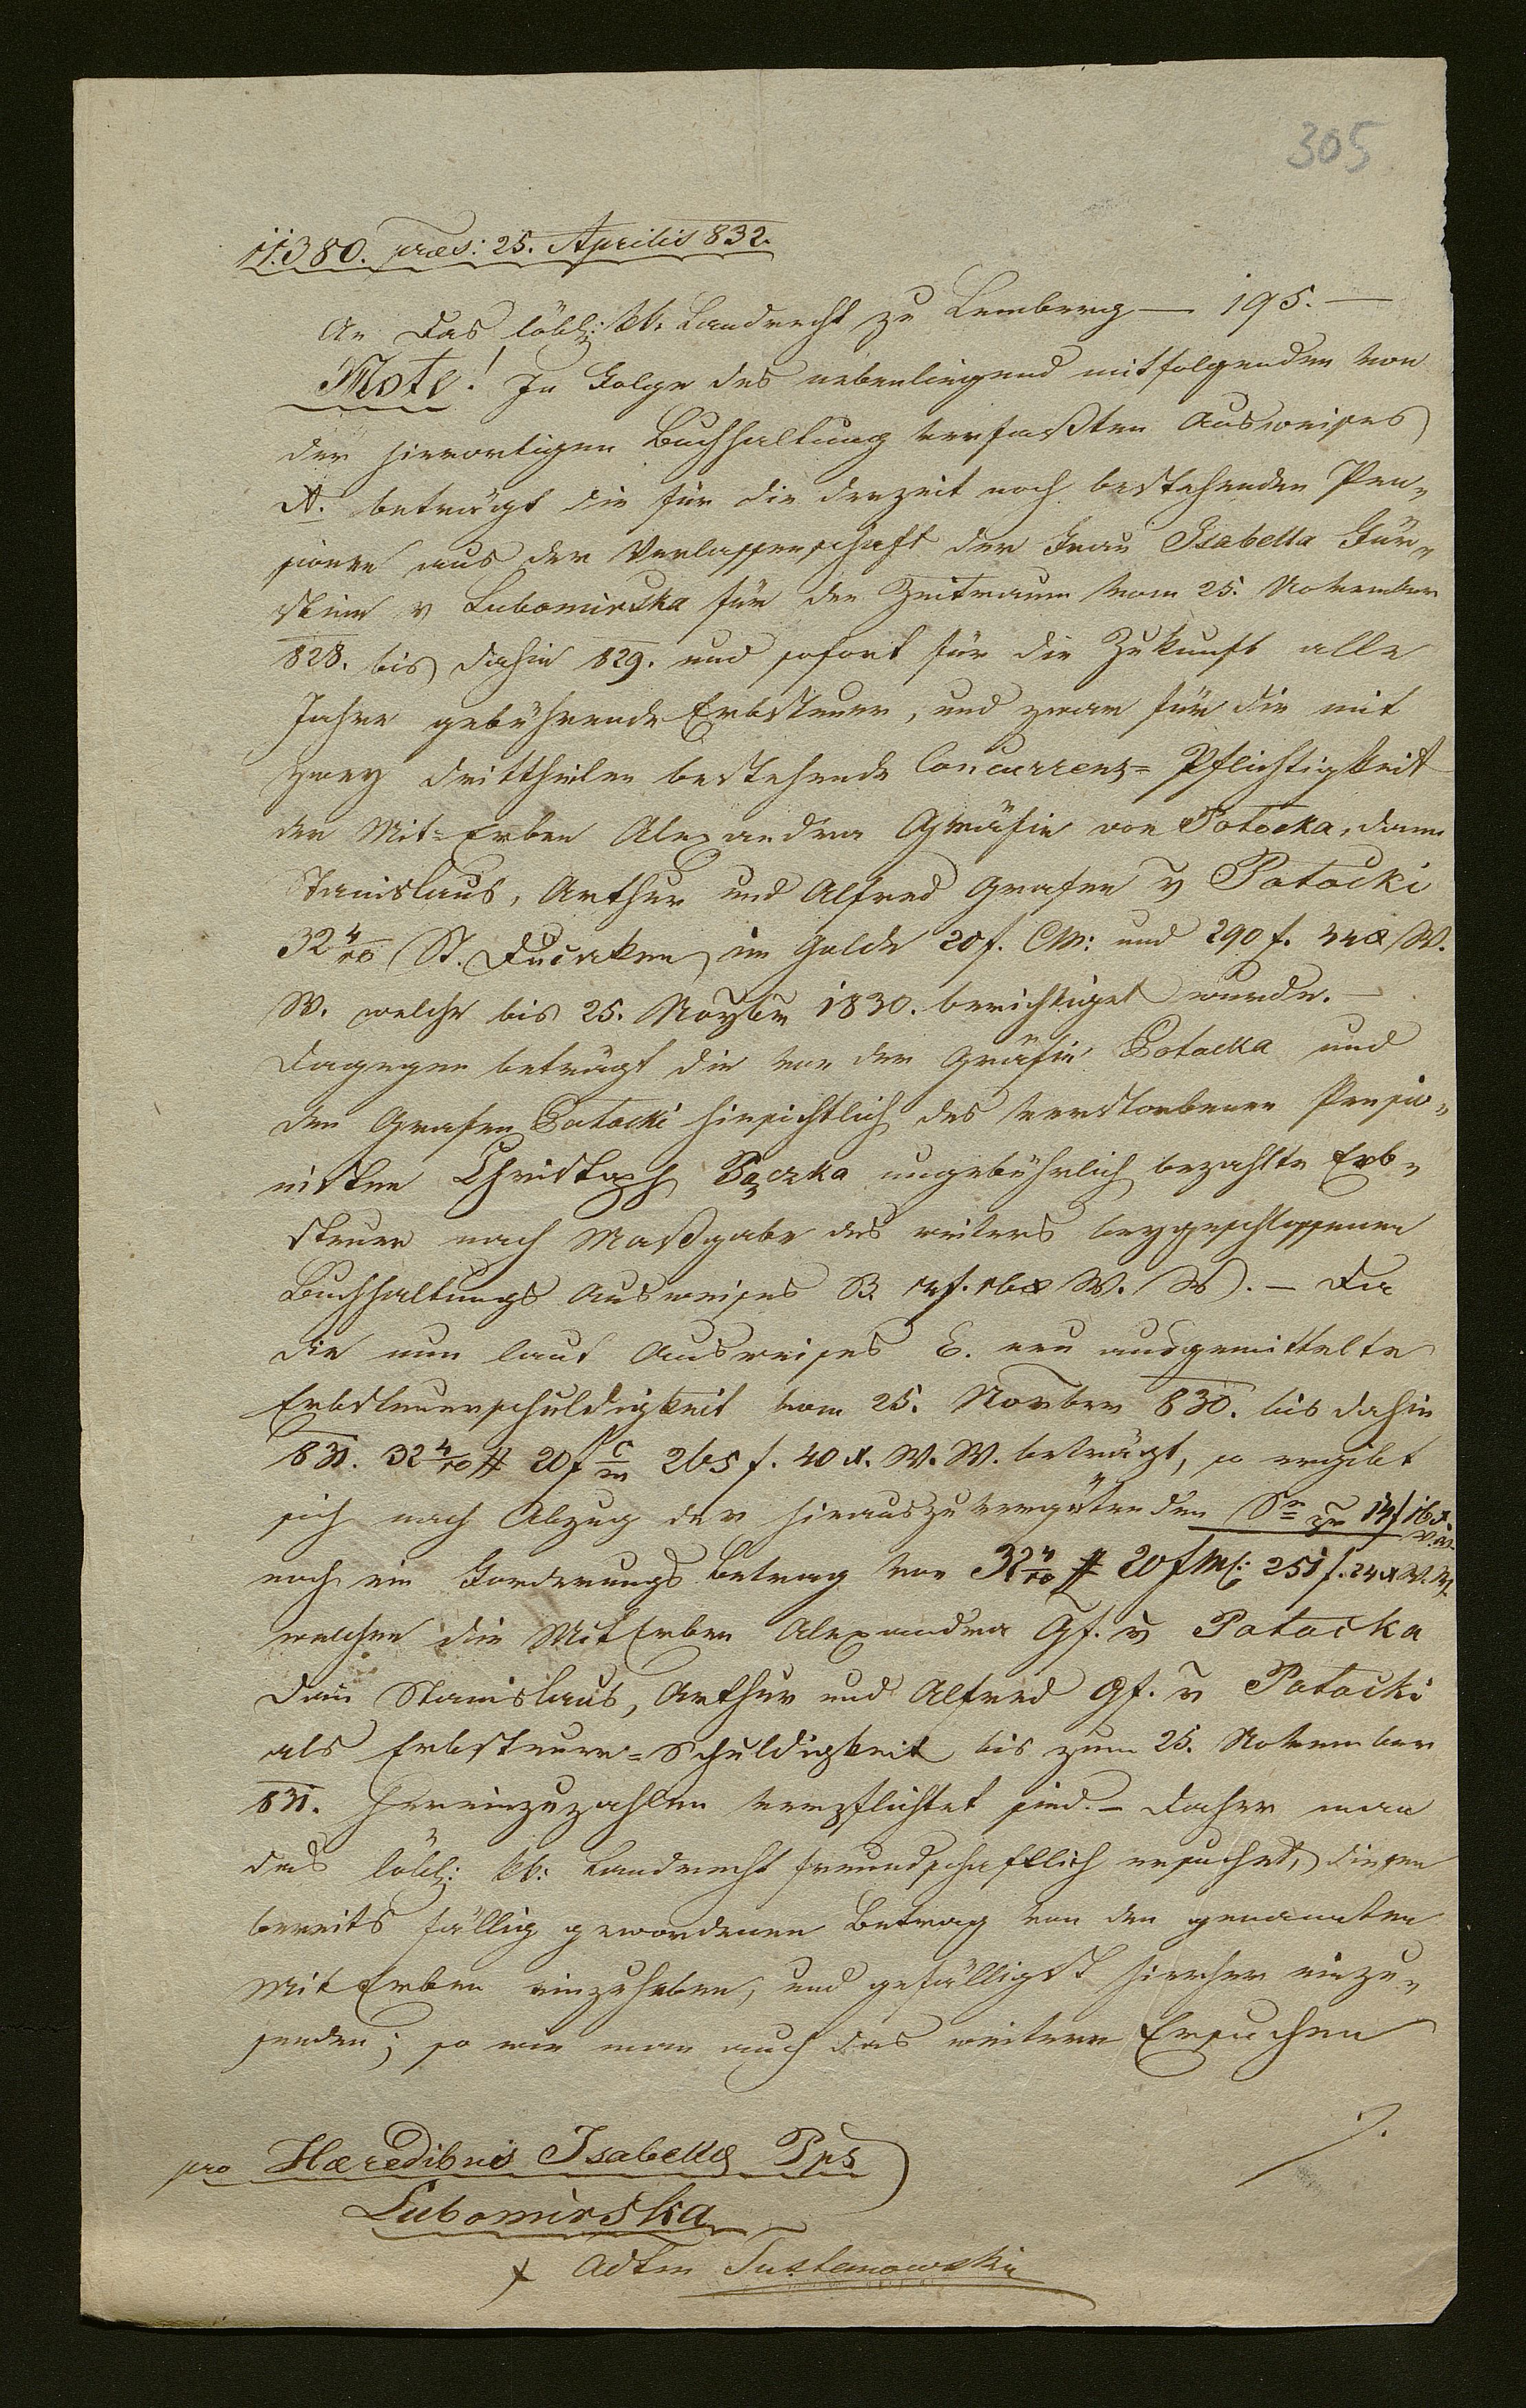 305
11380. præs: 25. Aprilis 832.
An das löbl: kk. Landrecht zu Lemberg — 195. —
Note! In Folge des nebenliegend mitfolgenden von
der hierortigen Buchhaltung verfaßten Ausweises
A. beträgt die für die derzeit noch bestehenden Pen„
sionen aus der Verlassenschaft der Frau Isabella Für„
stinn v Lubomirska für den Zeitraum vom 25. November
828. bis dahin 829. und sofort für die Zukunft alle
Jahre gebührende Erbsteuer, und zwar für die mit
zwey drittheilen bestehende Concurrenz= Pflichtigkeit
der Mit=Erben Alexandra Gräfin von Potocka, dann
Stanislaus, Arthur und Alfred Grafen v Potocki
32 4/10 St. Ducaten in Golde 20 f. CM: und 290 f. 44 x W.
W. welche bis 25. Novbr 1830. berichtiget wurde. —
Dagegen beträgt die von der Gräfin Potocka und
den Grafen Potocki hinsichtlich des verstorbenen Pensio„
nisten Christoph Bączka ungebührlich bezahlte Erb„
steuer nach Maßgabe des weiters beygeschlossenen
Buchhaltungs Ausweises B. 14 f. 16 x W. W. — Da
die nun laut Ausweises C. neu ausgemittelte
Erbsteuerschuldigkeit vom 25. Novber 830. bis dahin
831. 32 4/10 # 20 f C/m 265 f. 40 x. W. W. beträgt, so ergibt
sich nach Abzug der hinauszuvergütenden Se pr 14 f 16 x
W. W.
noch ein Forderungs Betrag von 32 4/10 # 20 f M: 251 f. 24 x W. W.
welchen die MitErben Alexandra Gf. v Potocka
dann Stanislaus, Arthur und Alfred Gf. v Potocki
als Erbsteuer=Schuldigkeit bis zum 25. November
831. hereinzuzahlen verpflichtet sind. — Daher man
das löbl: kk: Landrecht freundschaftlich ersuchet, diesen
bereits fällig gewordenen Betrag von den genannten
MitErben einzuheben, und gefälligst hierher einzu„
senden; so wie man auch das weitere Ersuchen
./.
pro Hæredibus Isabellæ Pps
Lubomirska
Adtm Tustanowski